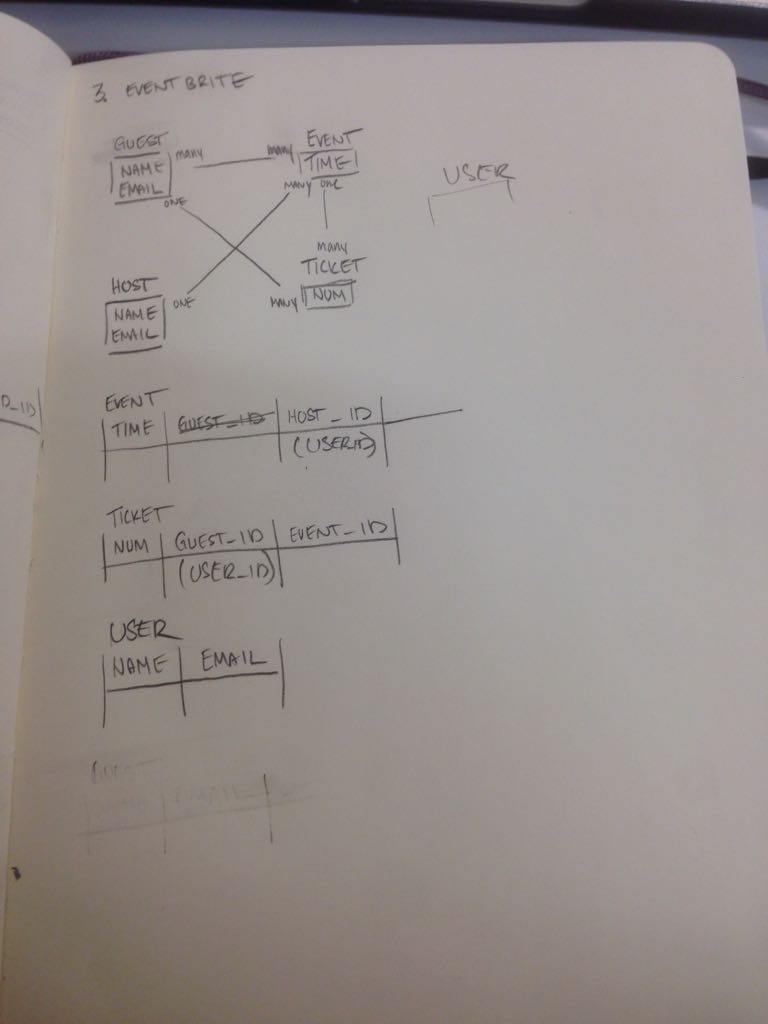 3. EVENTBRITE
GUEST
NAME
EMAIL
many
ONE
many
EVENT
TIME
MANY ONE
USER
many
TICKET
MANY
NUM
HOST
NAME
EMAIL
ONE
D_ID
EVENT
TIME GUEST_ID HOST_ID
(USERID)
TICKET
NUM GUEST_ID EVENT_ID
(USER_ID)
USER
NAME EMAIL